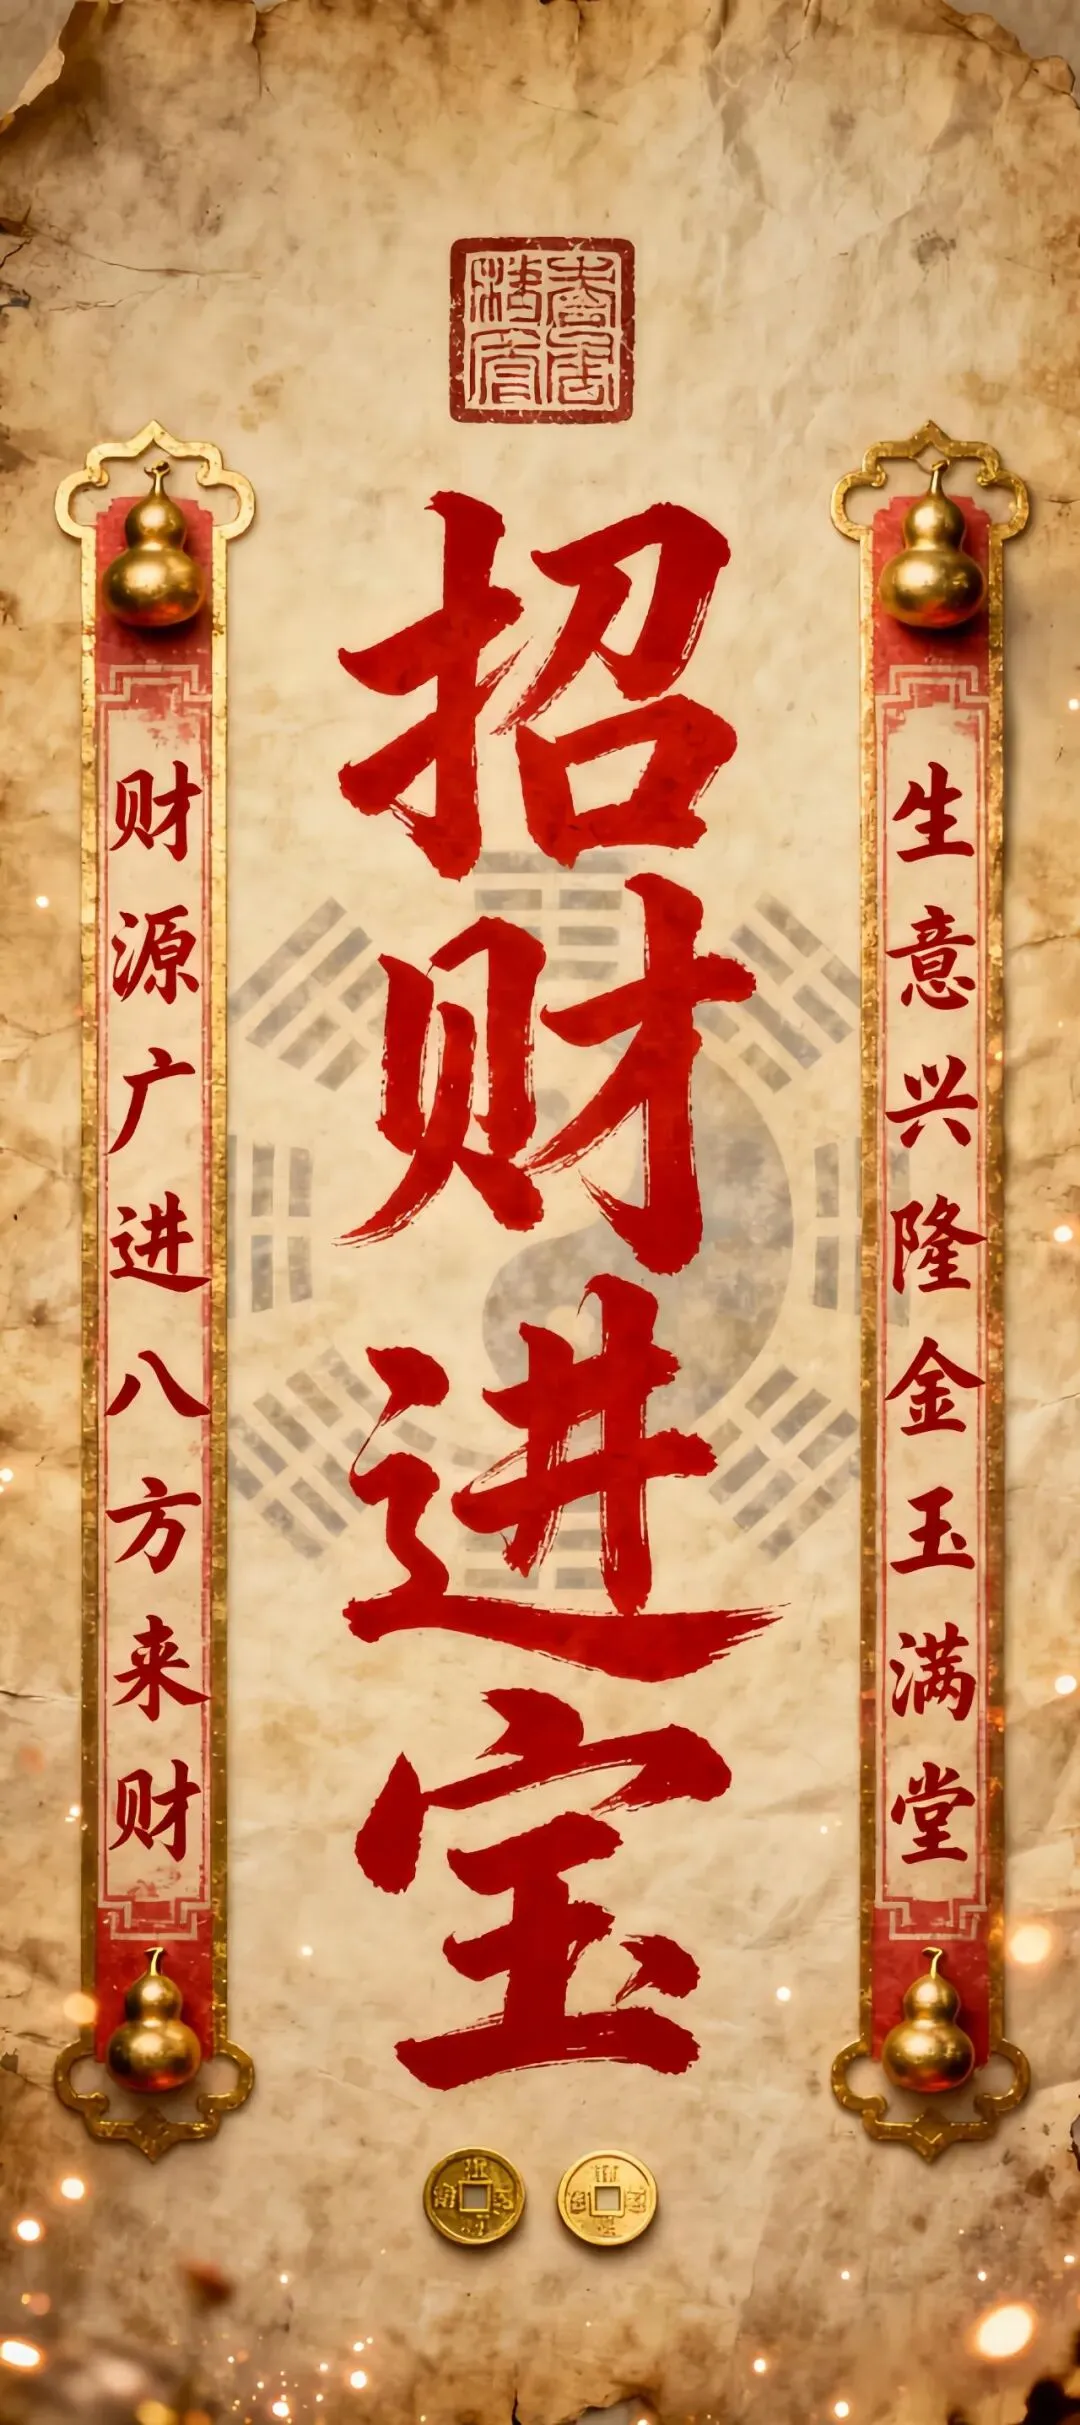 招财进宝
生意兴隆金玉满堂
财源广进八方来财